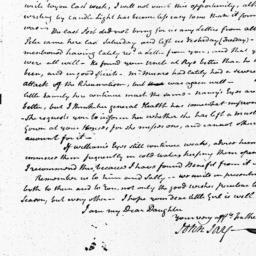 write to you last week, I will not omit this opportunity, alth
writing by candle Light has become less easy to me than it form
was — The last Post did not bring for us any letters from all
Peter came here last Saturday, and left us Yesterday (Sunday);
mentioned having lately had a letter from you, and that y
were all well — He found your Uncle at Rye better than he
been, and in good spirits. Mr Munro had lately had a severe
attack of the Rheumatism, but was again well —
little family here continue much the same — Nancy's Eyes are
better, but I think her general Health has somewhat improv
She requests you to inform her whether she has left a muslin
Gown at your House for she misses one, and cannot other
account for it —
If William's Eyes still continue weak, advise him
immerse them frequently in cold water keeping them open
I recommend this, because I have found Benefit from it —
Remember us to him and Sally — we unite in presenting
both to them and to You, not only the good wishes peculiar to
Season, but every other — I hope your dear little girl is well
I am my Dear Daughter
Your very affte. Father
John Jay